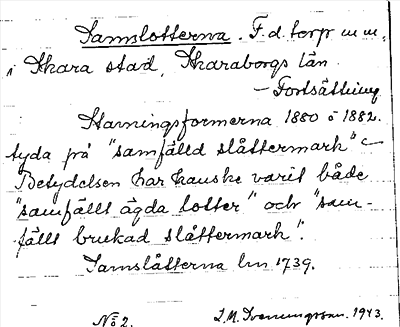 Samslotterna. F.d. torp m.m.
i Skara stad, Skaraborgs län.
— Fortsättning
Stavningsformerna 1880 o 1882.
tyda på "samfälld slåttermark" —
Betydelsen har kanske varit både
"samfällt ägda lotter" och "sam-
fällt brukad slåttermark".
Samslåtterna lm 1739.
No 2. J.M. 1943.